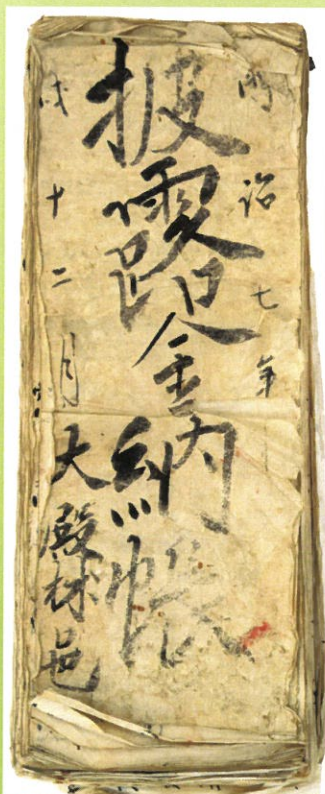 明治七年
披露金納帳
戌十二月
大殿